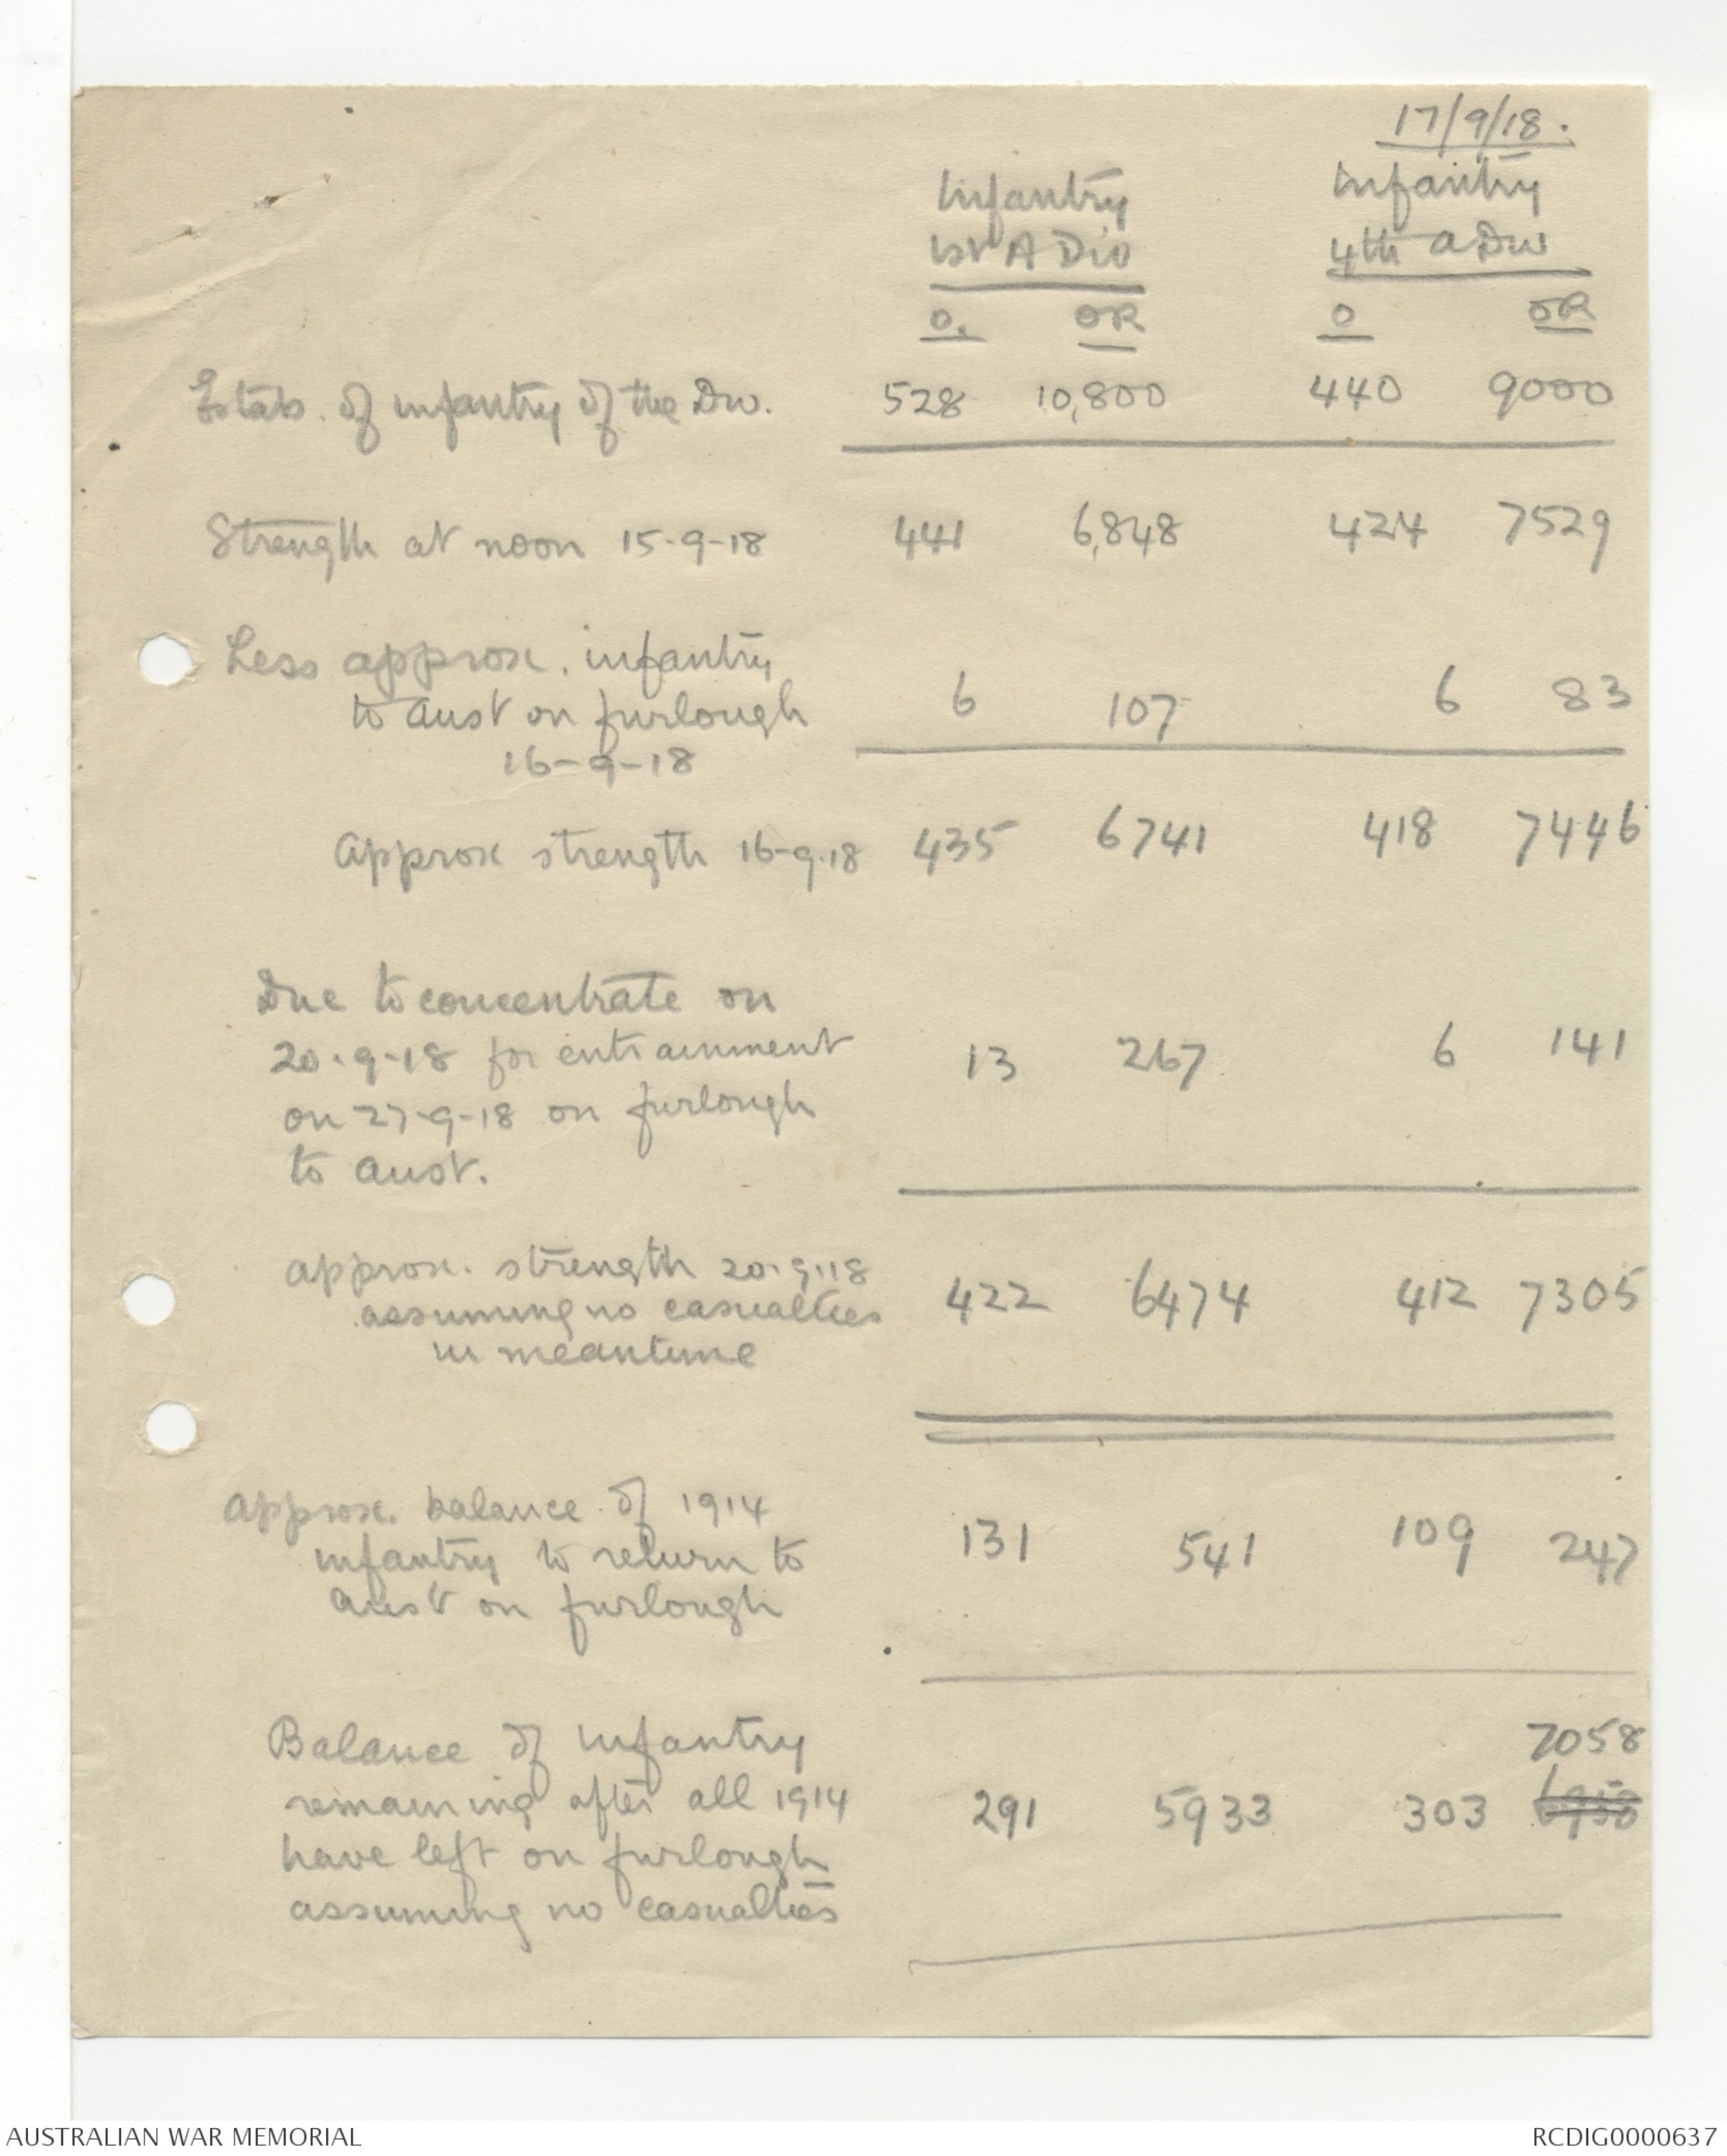 17/9/18.
Infantry Infantry
1st A Div 4th A Div
O. OR O OR
Estab. of infantry of the Div. 528 10,800 440 9000
Strength at noon 15-9-18 441 6,848 424 7529
Less approx. infantry
to Aust on furlough 6 107 6 83
16-9-18
Approx strength 16-9-18 435 6741 418 7446
Due to concentrate on
20-9-18 for entrainment 13 267 6 141
on 27-9-18 on furlough
to Aust.
Approx. strength 20-9-18 422 6474 412 7305
assuming no casualties
in meantime
Approx. balance of 1914 131 541 109 247
infantry to return to
Aust on furlough
Balance of Infantry 7058
remaining after all 1914 291 5933 303 6958
have left on furlough
assuming no casualties
AUSTRALIAN WAR MEMORIAL RCDIG0000637